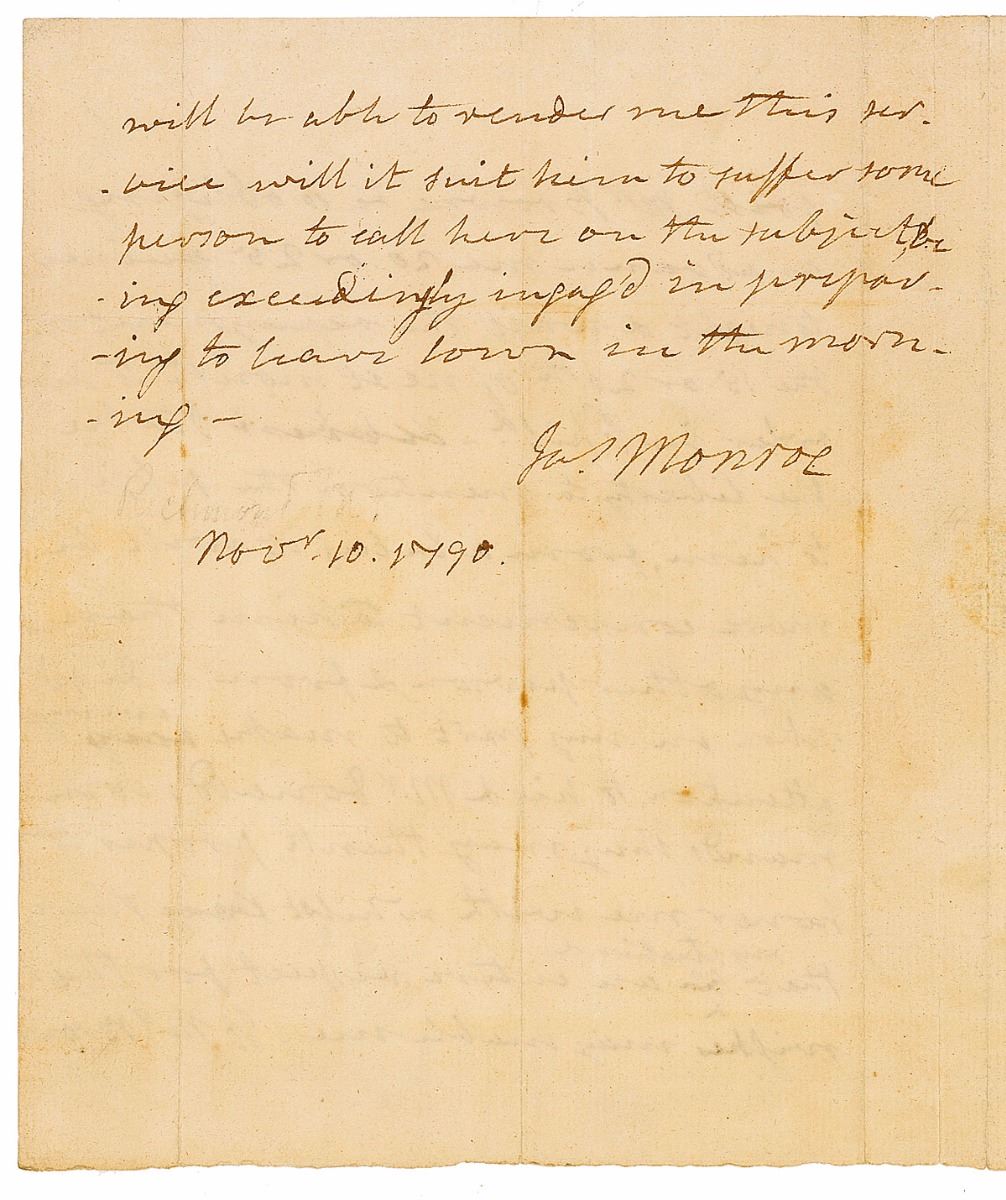 will be able to render me this ser-
-vice will it suit him to suffer some
person to call here on the subject, be
-ing exceedingly ingag'd in prepar-
-ing to leave town in the morn-
-ing -
Jas Monroe
Richmond
Novr. 10. 1790.